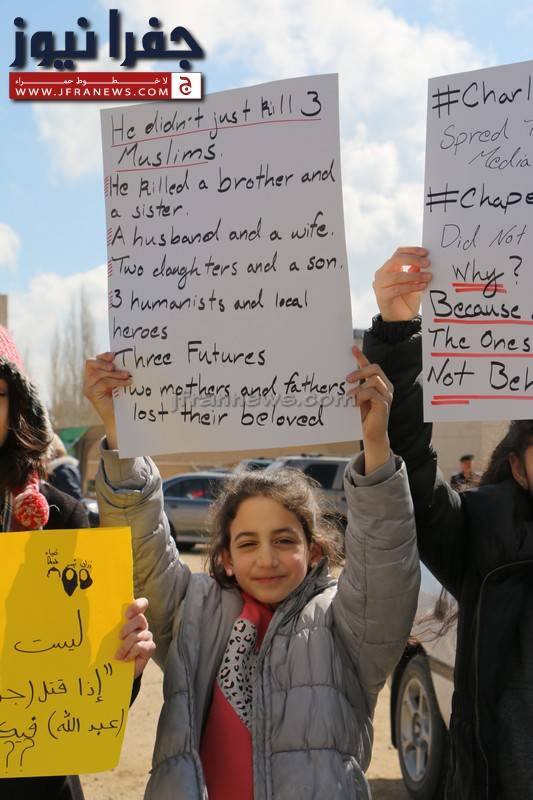 جفرا نيوز
لا خطوط حمراء
WWW.JFRANEWS.COM
He didn't just kill 3
Muslims.
He killed a brother and
a sister.
A husband and a wife.
Two daughters and a son.
3 humanists and local
heroes
Three Futures
Two mothers and fathers
lost their beloved
jfranews.com
#Charl
Spred T
Media
#Chape
Did Not
Why?
Because
The Ones
Not Beh
ليست
"إذا قتل (جر
(عبد الله) فيك
??